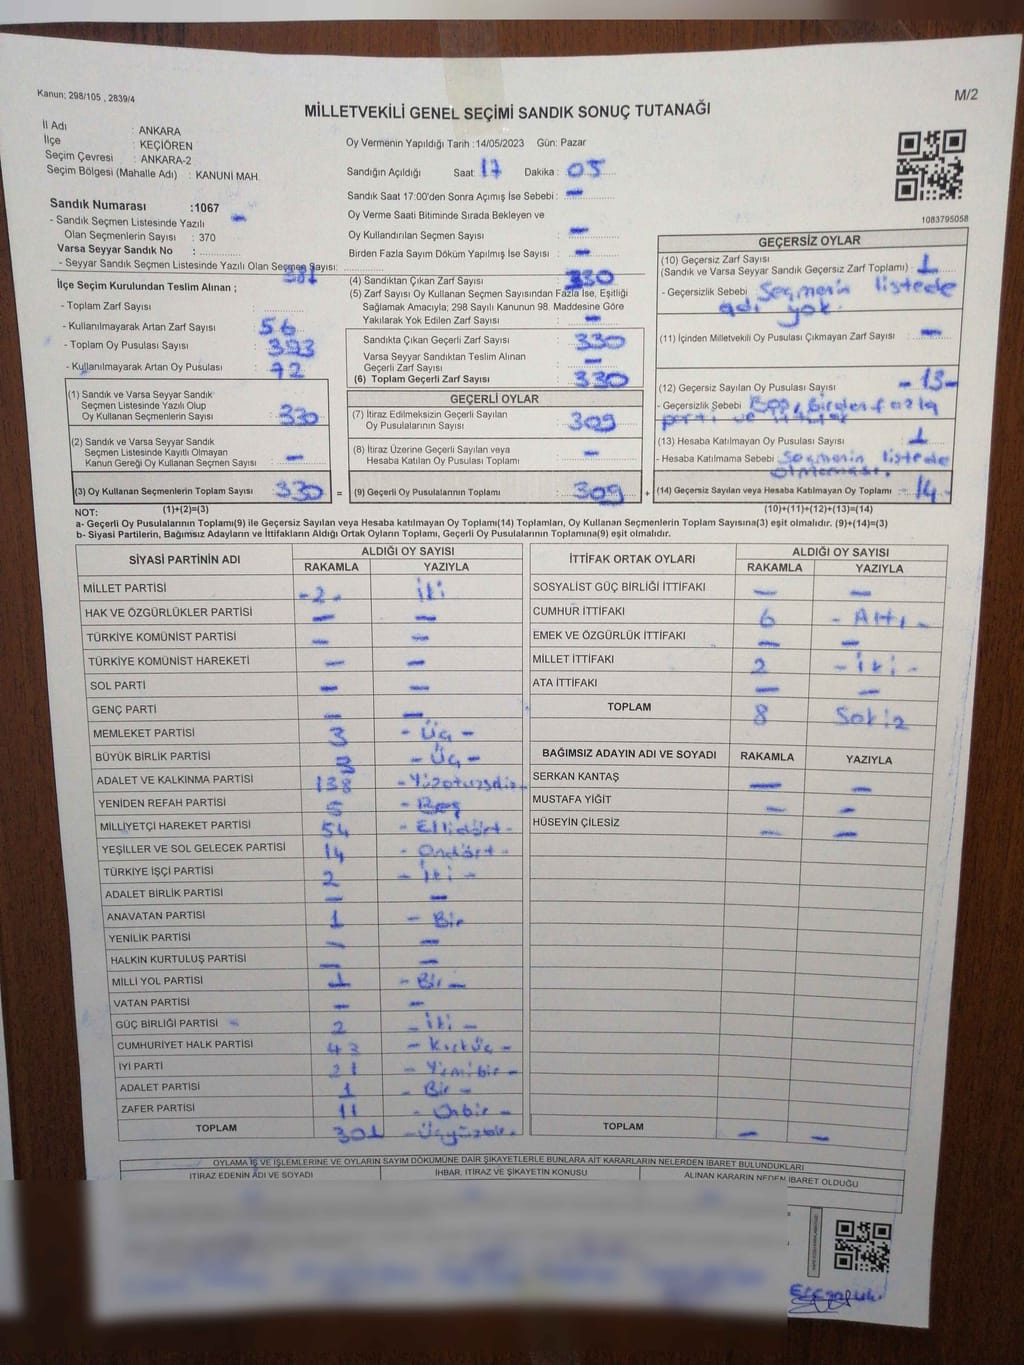 Kanun; 298/105 , 2839/4
M/2
MİLLETVEKİLİ GENEL SEÇİMİ SANDIK SONUÇ TUTANAĞI
İl Adı : ANKARA
İlçe : KEÇİÖREN
Seçim Çevresi : ANKARA-2
Seçim Bölgesi (Mahalle Adı) : KANUNİ MAH.
Sandık Numarası :1067
- Sandık Seçmen Listesinde Yazılı
Olan Seçmenlerin Sayısı : 370
Varsa Seyyar Sandık No :
- Seyyar Sandık Seçmen Listesinde Yazılı Olan Seçmen Sayısı:
İlçe Seçim Kurulundan Teslim Alınan ;
- Toplam Zarf Sayısı :
- Kullanılmayarak Artan Zarf Sayısı : 56
- Toplam Oy Pusulası Sayısı : 393
- Kullanılmayarak Artan Oy Pusulası : 72
(1) Sandık ve Varsa Seyyar Sandık
Seçmen Listesinde Yazılı Olup
Oy Kullanan Seçmenlerin Sayısı : 330
(2) Sandık ve Varsa Seyyar Sandık
Seçmen Listesinde Kayıtlı Olmayan
Kanun Gereği Oy Kullanan Seçmen Sayısı : -
(3) Oy Kullanan Seçmenlerin Toplam Sayısı 330 =
(1)+(2)=(3)
Oy Vermenin Yapıldığı Tarih :14/05/2023 Gün: Pazar
Sandığın Açıldığı Saat: 17 Dakika : 05
Sandık Saat 17:00'den Sonra Açımış İse Sebebi : -
Oy Verme Saati Bitiminde Sırada Bekleyen ve
Oy Kullandırılan Seçmen Sayısı : -
Birden Fazla Sayım Döküm Yapılmış İse Sayısı : -
(4) Sandıktan Çıkan Zarf Sayısı : 330
(5) Zarf Sayısı Oy Kullanan Seçmen Sayısından Fazla İse, Eşitliği
Sağlamak Amacıyla; 298 Sayılı Kanunun 98. Maddesine Göre
Yakılarak Yok Edilen Zarf Sayısı : -
Sandıkta Çıkan Geçerli Zarf Sayısı : 330
Varsa Seyyar Sandıktan Teslim Alınan
Geçerli Zarf Sayısı : -
(6) Toplam Geçerli Zarf Sayısı : 330
GEÇERLİ OYLAR
(7) İtiraz Edilmeksizin Geçerli Sayılan
Oy Pusulalarının Sayısı : 309
(8) İtiraz Üzerine Geçerli Sayılan veya
Hesaba Katılan Oy Pusulası Toplamı : -
(9) Geçerli Oy Pusulalarının Toplamı : 309 +
1083795058
GEÇERSİZ OYLAR
(10) Geçersiz Zarf Sayısı
(Sandık ve Varsa Seyyar Sandık Geçersiz Zarf Toplamı) : 1
- Geçersizlik Sebebi : Seçmenin listede
adı yok.
(11) İçinden Milletvekili Oy Pusulası Çıkmayan Zarf Sayısı : -
(12) Geçersiz Sayılan Oy Pusulası Sayısı : - 13 -
- Geçersizlik Sebebi : Boş, Birden fazla
parti ve ittifak
(13) Hesaba Katılmayan Oy Pusulası Sayısı : 1
- Hesaba Katılmama Sebebi : Seçmenin listede
olmaması.
(14) Geçersiz Sayılan veya Hesaba Katılmayan Oy Toplamı : - 14 -
(10)+(11)+(12)+(13)=(14)
NOT:
a- Geçerli Oy Pusulalarının Toplamı(9) ile Geçersiz Sayılan veya Hesaba katılmayan Oy Toplamı(14) Toplamları, Oy Kullanan Seçmenlerin Toplam Sayısına(3) eşit olmalıdır. (9)+(14)=(3)
b- Siyasi Partilerin, Bağımsız Adayların ve İttifakların Aldığı Ortak Oyların Toplamı, Geçerli Oy Pusulalarının Toplamına(9) eşit olmalıdır.
SİYASİ PARTİNİN ADI ALDIĞI OY SAYISI
RAKAMLA YAZIYLA
MİLLET PARTİSİ - 2 - İki
HAK VE ÖZGÜRLÜKLER PARTİSİ - -
TÜRKİYE KOMÜNİST PARTİSİ - -
TÜRKİYE KOMÜNİST HAREKETİ - -
SOL PARTİ - -
GENÇ PARTİ - -
MEMLEKET PARTİSİ 3 - Üç -
BÜYÜK BİRLİK PARTİSİ 3 - Üç -
ADALET VE KALKINMA PARTİSİ 138 - Yüzotuzsekiz -
YENİDEN REFAH PARTİSİ 5 - Beş
MİLLİYETÇİ HAREKET PARTİSİ 54 - Ellidört -
YEŞİLLER VE SOL GELECEK PARTİSİ 14 - Ondört -
TÜRKİYE İŞÇİ PARTİSİ 2 - İki -
ADALET BİRLİK PARTİSİ - -
ANAVATAN PARTİSİ 1 - Bir
YENİLİK PARTİSİ - -
HALKIN KURTULUŞ PARTİSİ - -
MİLLİ YOL PARTİSİ 1 - Bir -
VATAN PARTİSİ - -
GÜÇ BİRLİĞİ PARTİSİ 2 - İki -
CUMHURİYET HALK PARTİSİ 43 - Kırküç -
İYİ PARTİ 21 - Yirmibir -
ADALET PARTİSİ 1 - Bir -
ZAFER PARTİSİ 11 - Onbir -
TOPLAM 301 - Üçyüzbir -
İTTİFAK ORTAK OYLARI ALDIĞI OY SAYISI
RAKAMLA YAZIYLA
SOSYALİST GÜÇ BİRLİĞİ İTTİFAKI - -
CUMHUR İTTİFAKI 6 - Altı -
EMEK VE ÖZGÜRLÜK İTTİFAKI - -
MİLLET İTTİFAKI 2 - İki -
ATA İTTİFAKI - -
TOPLAM 8 Sekiz
BAĞIMSIZ ADAYIN ADI VE SOYADI RAKAMLA YAZIYLA
SERKAN KANTAŞ - -
MUSTAFA YİĞİT - -
HÜSEYİN ÇİLESİZ - -
TOPLAM - -
OYLAMA İŞ VE İŞLEMLERİNE VE OYLARIN SAYIM DÖKÜMÜNE DAİR ŞİKAYETLERLE BUNLARA AİT KARARLARIN NELERDEN İBARET BULUNDUKLARI
İTİRAZ EDENİN ADI VE SOYADI İHBAR, İTİRAZ VE ŞİKAYETİN KONUSU ALINAN KARARIN NEDEN İBARET OLDUĞU